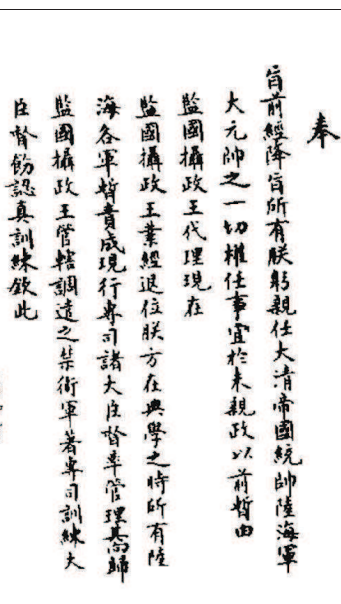 奉
旨前經降旨所有朕躬親任大清帝國統帥陸海軍
大元帥之一切權任事宜於未親政以前暫由
監國攝政王代理現在
監國攝政王業經退位朕方在典學之時所有陸
海各軍暫責成現行專司諸大臣督率管理其向歸
監國攝政王管轄調遣之禁衛軍著專司訓練大
臣督飭認真訓練欽此